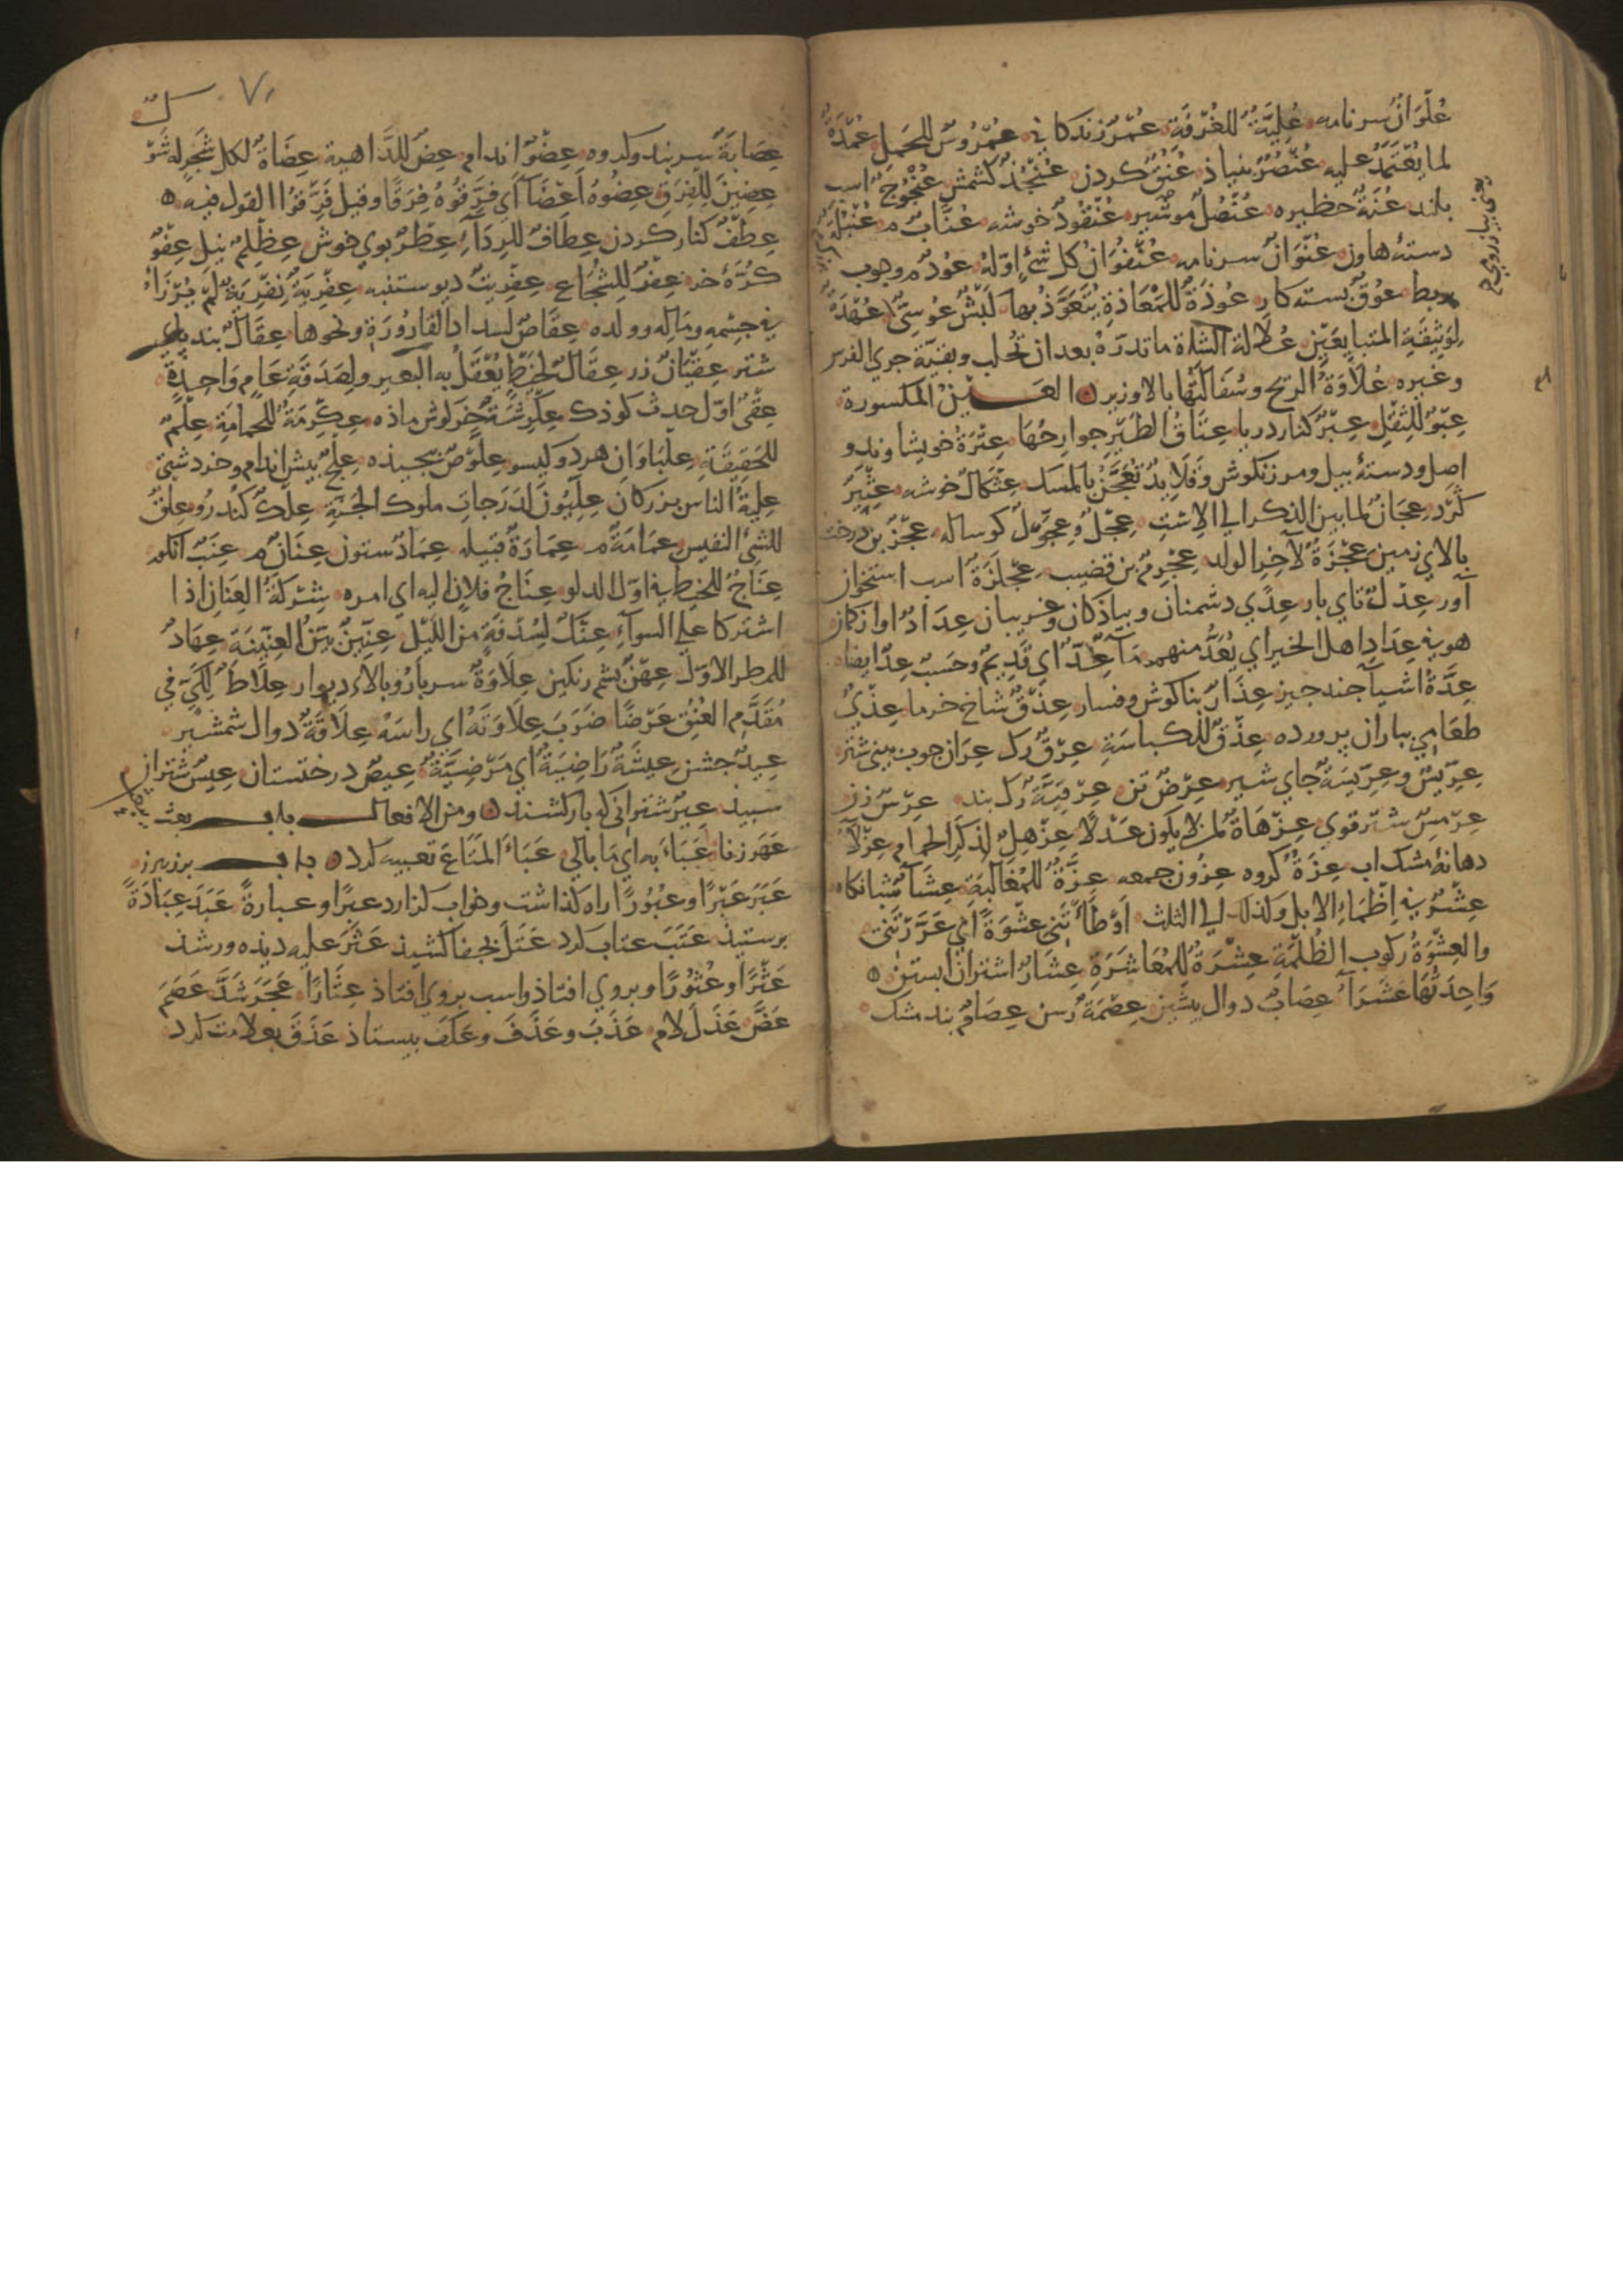 عُلْوَانٌ سرنامه عُلِّيَّةٌ للغُرْفَةِ عُمْرٌ زندكاني عُمْرُوسٌ للحَمَل عُمْدَةٌ
لما يُعْتَمَدُ عليه عُنْصُرٌ بنياذ عُنُقٌ كردن عُنْجُدٌ كشمش عُنْجُوجٌ اسب
بلند عُنَّةٌ حظيره عُنْصُلٌ موشير عُنْقُودٌ خوشه عُنَّابٌ م عُنْبُلَةٌ
دستۀ هاون عُنْوَانٌ سرنامه عُنْفُوَانُ كل شئٍ اوّلهُ عُودٌ م وجوب
بربط عُوَقٌ بسته كار عُوذَةٌ للمَعَاذةِ يُتَعَوَّذُ بها كَبْشٌ عُوسِيٌّ عُهْدَةٌ
لِوَثِيقَةِ المتبايعَيْنِ عُلالة الشاة ما تدرّهُ بعد ان تُحلب وبقيّة جري الفرس
وغيره عُلَاوَةُ الريح وسُفَالَتُها بالا وزير العين المكسورة
عِبْوٌ للثِقْلِ عِبْرٌ كنار دريا عِتَاقُ الطَيْرِ جوارحُهَا عِتْرَةٌ خويشاوندو
اصل ودستۀ بيل ومرزنكوش وقَلَايدُ تُعْجَنُ بالمسك عِثْكَالٌ خوشه عِثْيَرٌ
كَرْد عِجَانٌ لما بين الذكر الي الاست عِجْلٌ وعِجَّوْلٌ كوساله عِجْزٌ بن درخت
بالاي زمين عِجْزَةٌ لآخِرِ الولد عِجْرِمٌ بن قضيب عِجْلِزَةٌ اسب استخوان
آور عِدْلٌ تاي بار عِدًي دشمنان وبياذكان وغريبان عِدَادٌ اواز كمان
هو في عِدَادِ اهل الخير اي يُعَدُّ منهم مآءٌ عِدٌّ اي قَدِيمٌ وحَسَبٌ عِدٌّ ايضا
عِدَّةُ اشيآ جند جيز عِذَارٌ بناكوش وفسار عِذْقٌ شاخ خرما عِذْيٌ
طعامي بباران پرورده عِذْقٌ للكباسَةِ عِرْقٌ رك عِرَان جوب بيني شتر
عِرِّيسٌ وعِرِّيسَةٌ جاي شير عِرْضٌ تن عِرْقِيَّةٌ رك بند عِرْسٌ زن
عِرْمِسٌ شتر قوي عِزْهَاةٌ لمن لا يكون غَزْلًا عِزْهِلٌ لذكر الحمام عِزْلَآءُ
دهانۀ مشك اب عِزَةٌ كروه عِزُون جمعه عِزَّةٌ للمُغَالَبَةِ عِشَآءٌ شبانكاه
عِشْرٌ في اِظْمَاءِ الابل وكذلك الي الثلث اَوْطَأْتَنِي عِشْوَةً اي غَرَّرْتَنِي
والعِشْوَةُ ركوب الظُلْمَةِ عِشْرَةٌ للمُعَاشَرَةِ عِشَارٌ اشتران ابستن
وَاحِدَتُهَا عُشَرَآءُ عِصَابٌ دوال پشين عِصْمَةٌ رسن عِصَامٌ بند مشك
يعني پياز
٧١
عِصَابَةٌ سربند وكروه عِضْوٌ اندام عِضٌ للدَّاهية عِضَاةٌ لكل شَجَرٍ له شَوْ
ك
عِضِينَ لِلْفِرَقِ عِضُوهُ اَعْضَآءً اي فَرَّقُوهُ فِرَقًا وقيل فَرَّقُوا القول فيه
عِطْفٌ كنار كردن عِطَافٌ للرِدَآءِ عِطْرٌ بوي خوش عِظْلِمٌ نيل عِفْوٌ
كُرَّۀ خر عِفْرٌ لِلشُّجَاع عِفْرِيتٌ ديو ستنبه عِفْرِيَةٌ نِفْرِيَةٌ لم يُرْزَأْ
في جِسْمِهِ ومَالِه وولده عِفَاصٌ لسداد القارُورَةِ ونحوها عِقَالٌ بند پاي
شتر عِقْيَانٌ زر عِقَالٌ لخَيْطٍ يُعْقَلُ به البعير ولِصَدَقَةِ عَامٍ وَاحِدٍ
عِقْيٌ اوّل حدث كوذك عِكْرِشَةٌ خركوش ماذه عِكْرِمَةٌ للحَمَامَةِ عِلْمٌ
للحَقِيقَةِ عِلْبَاوَانِ هردو كيسو عِلَّوْصٌ پيجيذه عِلْجٌ بيش اندام وخر دشتي
عِلْيَةُ الناس بزركان عِلِّيُّونَ لدَرَجاتِ ملوك الجَنّةِ عِلْكٌ كُنْدُرُو عِلْقٌ
للشئ النفيس عِمَامَةٌ م عِمَارَةٌ قبيله عِمَادٌ ستون عِنَانٌ م عِنَبٌ انكور
عِنَاجٌ للخيط في اوّل الدلو عِنَاجُ فلانٍ اليه اي امره شِرْكَةُ العِنَانِ اذا
اشتركا علي السوآءِ عِنْكٌ لِسُدْفَةٍ من الليل عِنِّينٌ بَيِّنُ العِنِّينَةِ عِهَادٌ
للمطر الاوّل عِهْنٌ پشم رنكين عِلَاوَةٌ سربارُ وبالاء ديوار عِلَاطٌ لِكَيٍّ في
مُقَدَّمِ العُنُقِ عَرْضًا ضَرَبَ عِلَاوَتَهُ اي راسَهُ عِلَاقَةٌ دوال شمشير
عِيدٌ جشن عيشَةٌ رَاضِيَةٌ اي مَرْضِيَّةٌ عِيصٌ درختستان عِيسٌ شتران
سپيذ عِيرٌ شتراني كه بار كشند ومن الافعال باب بعث
عَهَرَ زنا عَبَأَ به اي مَا بَالَي عَبَاءَ المَتَاعَ تعبيه كرد باب برز يبرز
عَبَرَ عَبْرًا وعُبُورًا راه كذاشت وخواب كزارد عبرًا وعبارةً عَبَدَ عِبَادَةً
پرستيذ عَتَبَ عتاب كرد عَتَلَ بجفا كشيذ عَثَرَ عليه ديذه ور شذ
عَثْرًا وعُثُورًا وبروي افتاذ واسب بروي افتاذ عِثَارًا عَجَرَ شَدَّ عَصَمَ
عَضَّ عَذَلَ لام عَذَبَ وعَذَفَ وعَكَفَ بيستاذ عَذَقَ بعلامت كرد